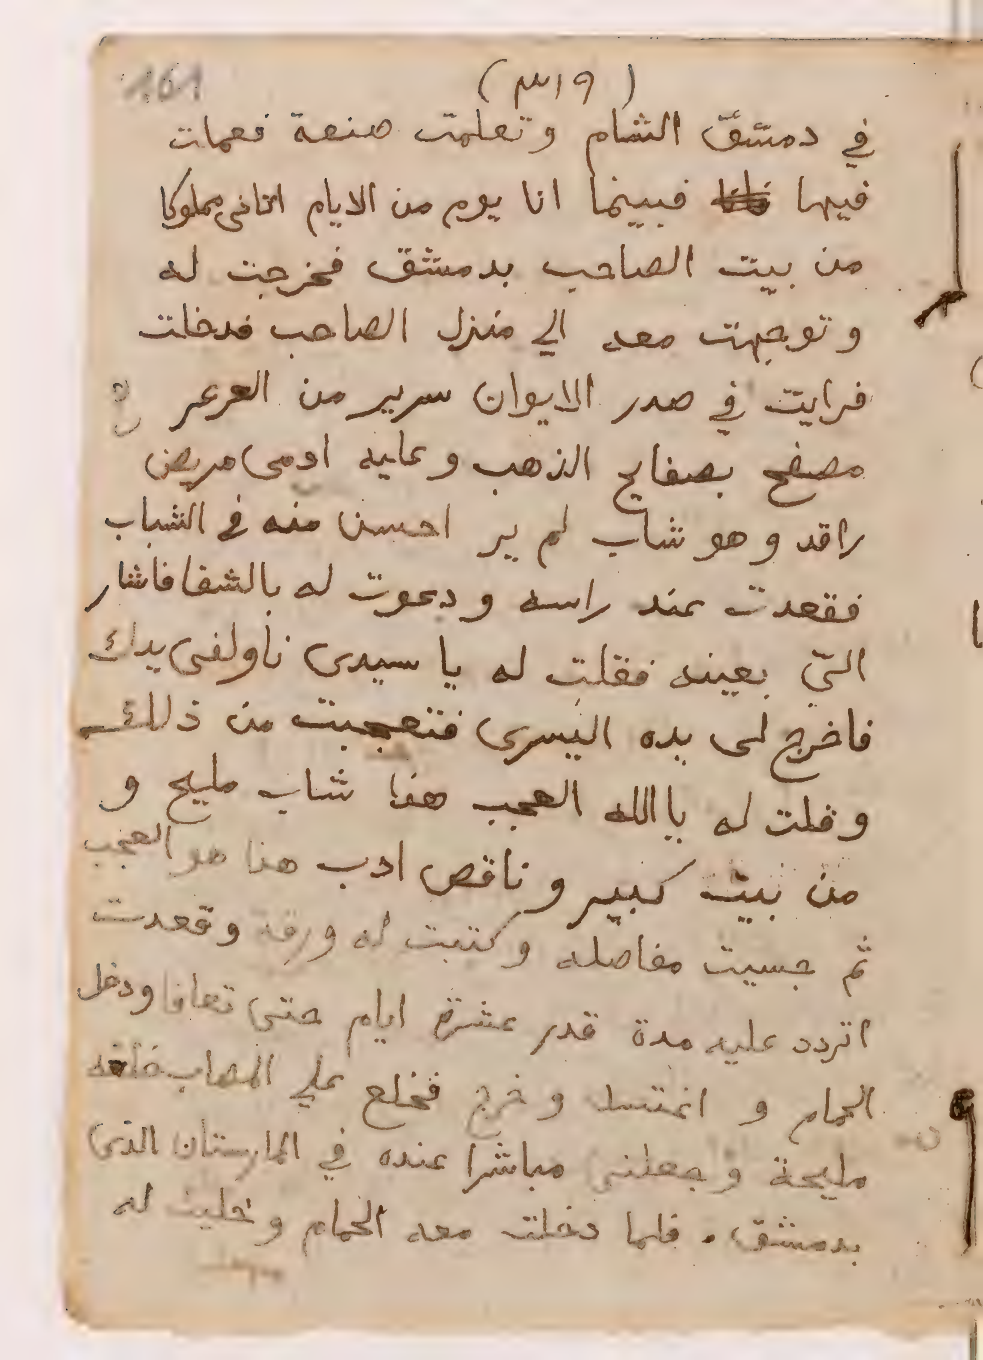 161
(٣١٩)
في دمشق الشام وتعلمت صنعة فعملت
فيها فبينما انا يوم من الايام اتانى مملوكا
من بيت الصاحب بدمشق فخرجت له
وتوجهت معه الي منزل الصاحب فدخلت
فرايت في صدر الايوان سرير من العرعر
مصفح بصفايح الذهب وعليه ادمى مريض
راقد وهو شاب لم ير احسن منه في الشباب
فقعدت عند راسه ودعوت له بالشفا فاشار
اليّ بعينه فقلت له يا سيدى ناولنى يدك
فاخرج لى يده اليسرى فتعجبت من ذلك
وقلت له يا الله العجب هذا شاب مليح و
من بيت كبير وناقص ادب هذا هو العجب
ثم جسيت مفاصله وكتبت له ورقة وقعدت
اتردد عليه مدة قدر عشرة ايام حتى تعافا ودخل
الحمام و اغتسل وخرج فخلع علي خلعه
مليحة وجعلنى مباشرا عنده في المارستان الذى
بدمشق . فلما دخلت معه الحمام وخليت له